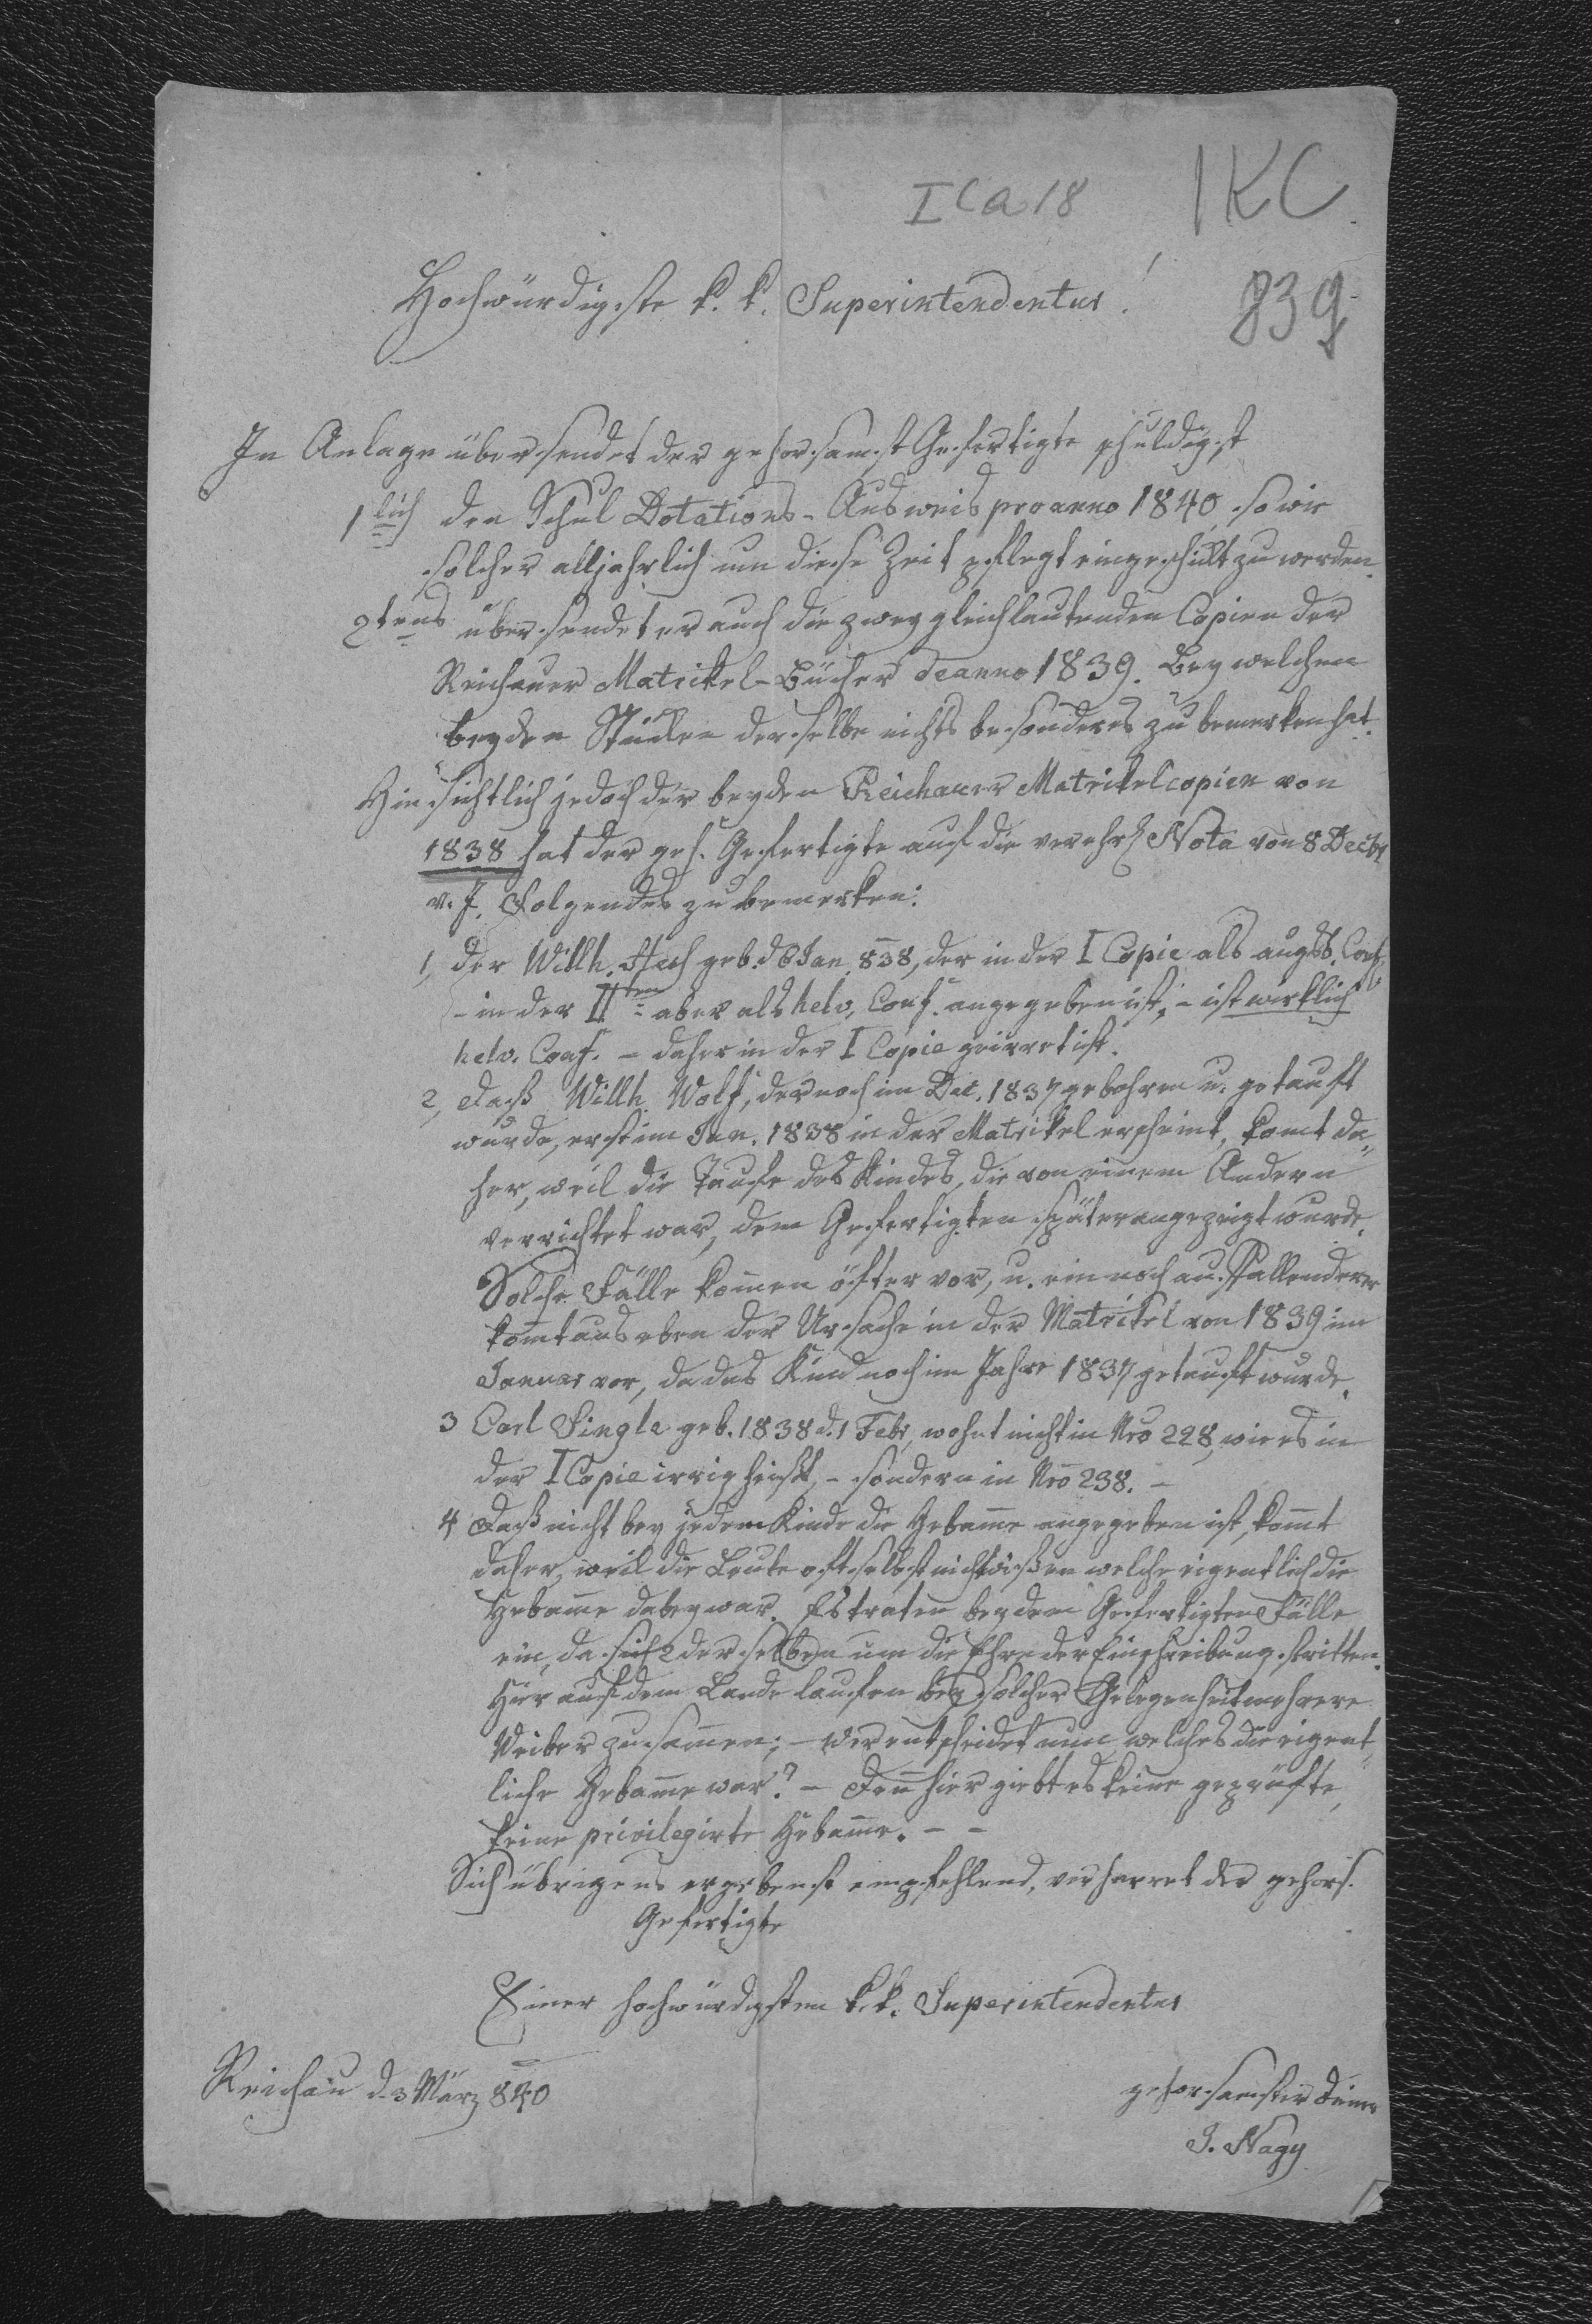 I C a 18
1KC
839
Hochwürdigste k. k. Superintendentur!
In Anlage übersendet der gehorsamst Gefertigte schuldigst
1lich den Schul Dotations-Ausweis pro anno 1840, so wie
solcher alljährlich um diese Zeit pflegt eingeschickt zu werden.
2tens übersendet er auch die zwey gleichlautenden Copien der
Reichauer Matrikel-Bücher de anno 1839. Bey welchen
beyden Stücken derselbe nichts besonderes zu bemerken hat.
Hinsichtlich jedoch der beyden Reichauer Matrikelcopien von
1838 hat der geh. Gefertigte auf die verehrl Nota von 8 Decbr
v. J. Folgendes zu bemerken:
1, der Willh. geb. d 6 Jan. 838, der in der I Copie als augsb. Conf.
- in der IIten aber als helv. Conf. angegeben ist, - ist wirklich
helv. Conf. - daher in der I Copie geirret ist.
2, daß Willh. Wolf, der noch im Dec. 1837 gebohren u. getauft
wurde, erst im Jan. 1838 in der Matrikel erscheint, komt da-
her, weil die Taufe des Kindes, die von einem Andern
verrichtet war, dem Gefertigten später angezeigt wurde.
Solche Fälle kom̄en öfter vor, u. ein noch auffallenderer
komt aus eben der Ursache in der Matrikel von 1839 im
Januar vor, da das Kind noch im Jahre 1837 getauft wurde.
3 Carl Single geb. 1838 d. 1 Febr, wohnt nicht in Nro 228, wie es in
der I Copie irrig heißt, - sondern in Nro 238. -
4 Daß nicht bey jedem Kinde die Hebam̄e angegeben ist, kom̄t
daher, weil die Leute oft selbst nicht wißen welche eigentlich die
Hebam̄e dabey war. Es traten bey dem Gefertigten Fälle
ein, da sich 2 derselben um die Ehre der Einschreibung stritten.
Hier auf dem Lande laufen bey solcher Gelegenheit mehrere
Weiber zusam̄en; - wer entscheidet nun welches die eigent-
liche Hebam̄e war? - Den̄ hier giebt es keine geprüfte,
keine privilegirte Hebam̄e. - -
Sich übrigens ergebenst empfehlend, verharret der gehors.
Gefertigte
Einer hochwürdigsten k. k. Superintendentur
Reichau d. 3 März 840
gehorsamster Diener
J. Nagy